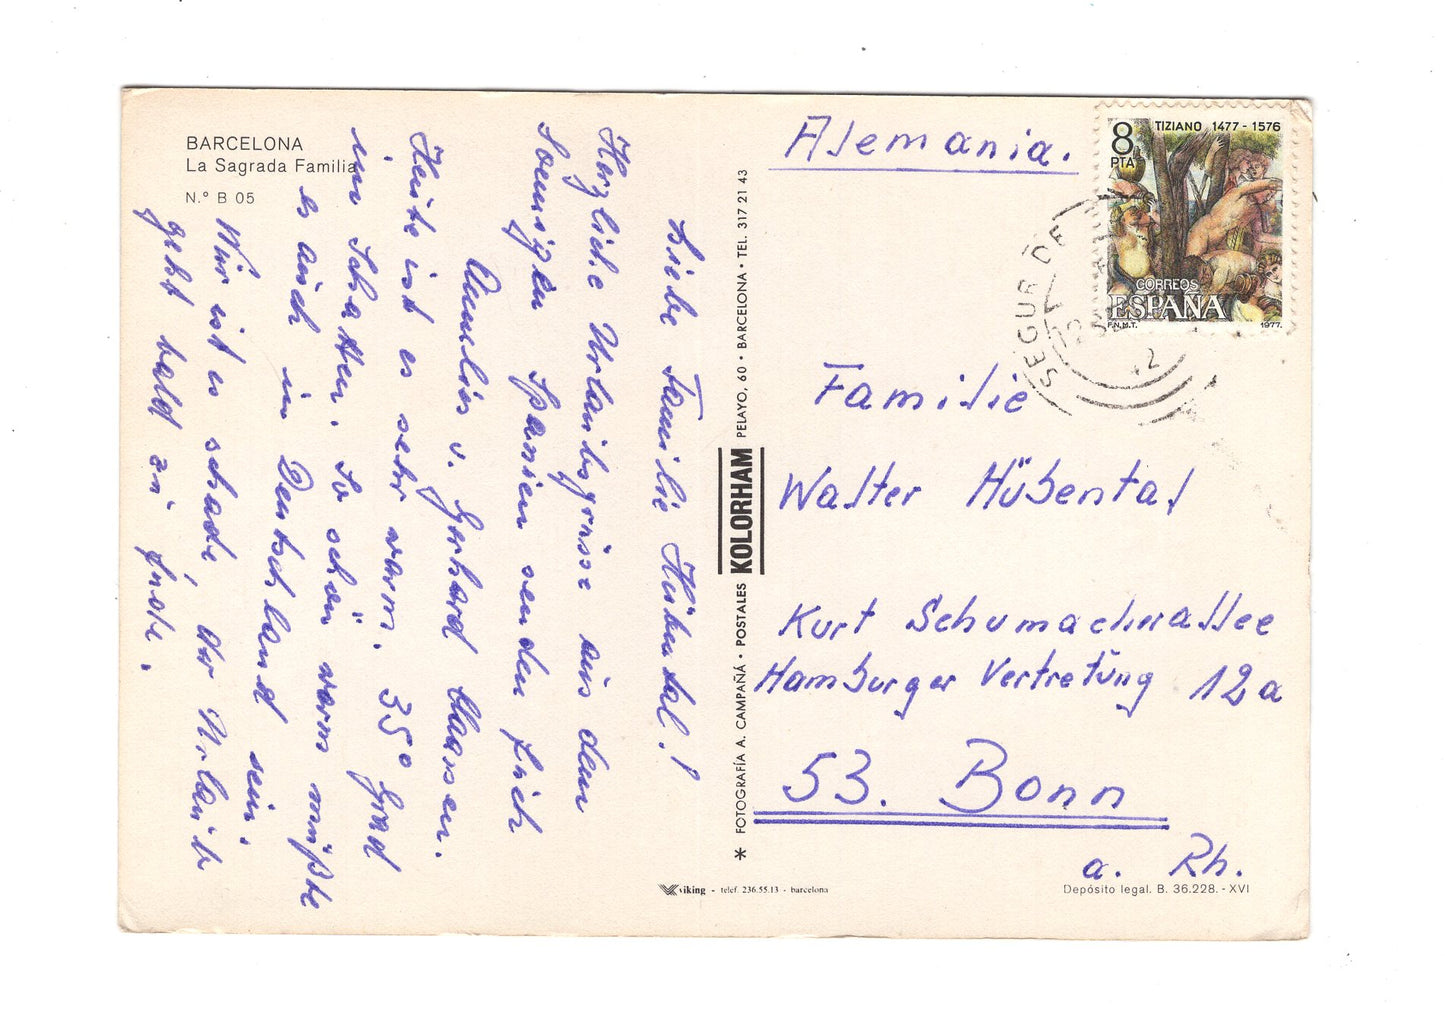 BARCELONA
La Sagrada Familia
N.° B 05
Liebe Familie Hübental!
Herzliche Urlaubsgrüsse aus dem
Sonnigen Spanien senden Euch
Annelies u. Gerhard Claasen.
Heute ist es sehr warm. 35° Grad
im Schatten. So schön warm müßte
es auch in Deutschland sein.
Nur ist es schade, der Urlaub
geht bald zu Ende.
* FOTOGRAFÍA A. CAMPAÑÁ • POSTALES KOLORHAM PELAYO, 60 • BARCELONA • TEL. 317 21 43
viking - telef. 236.55.13 - barcelona
Alemania.
8 PTA
TIZIANO 1477 - 1576
CORREOS
ESPAÑA
F.N.M.T. 1977.
SEGUR DE
Familie
Walter Hübental
Kurt Schumacherallee
Hamburger Vertretung 12a
53. Bonn
a. Rh.
Depósito legal. B. 36.228. - XVI